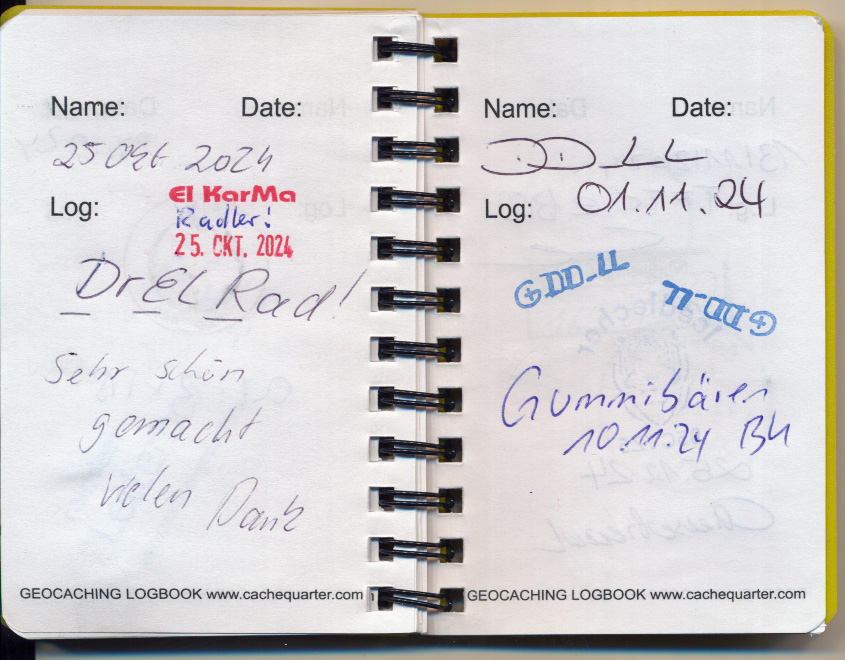 Name: Date:
25 Okt 2024
El KarMa
Radler!
Log:
25. OKT. 2024
DrEL Rad!
Sehr schön
gemacht
vielen Dank
GEOCACHING LOGBOOK www.cachequarter.com
Name: Date:
DD_LL
Log: 01.11.24
DD_LL DD_LL
Gummibären
10.11.24 BH
GEOCACHING LOGBOOK www.cachequarter.com